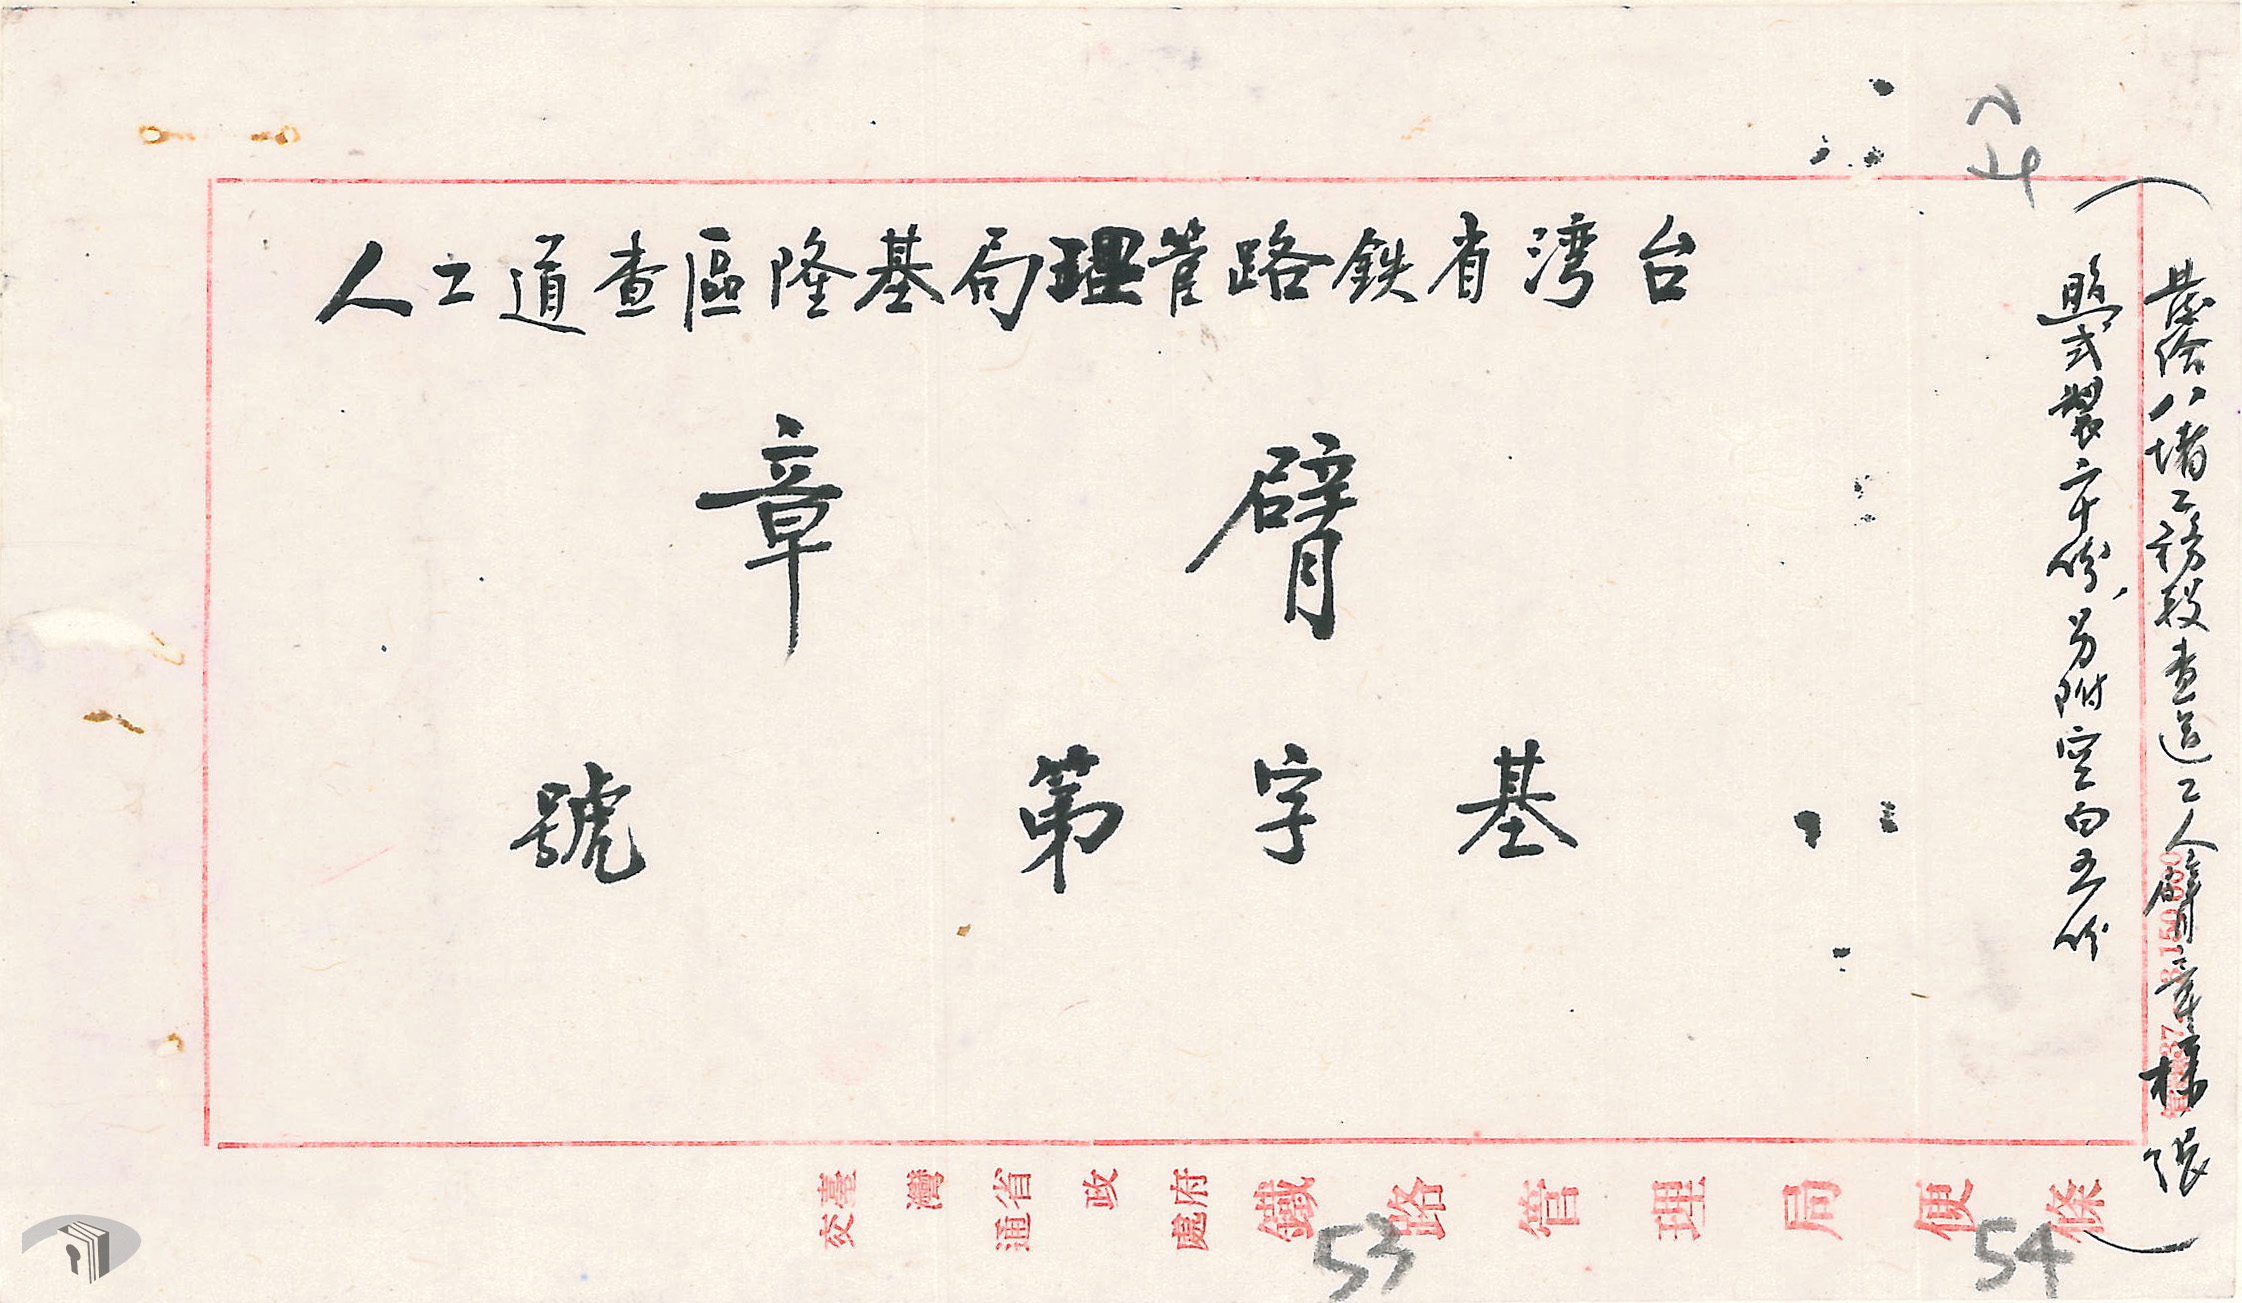 台湾省鉄路管理局基隆區查道工人
臂章
基字第 號
發給八堵工務段查道工人臂章樣張
照式製二十份，另附空白五份
臺灣省政府
交通處
鐵路管理局便條
53
54